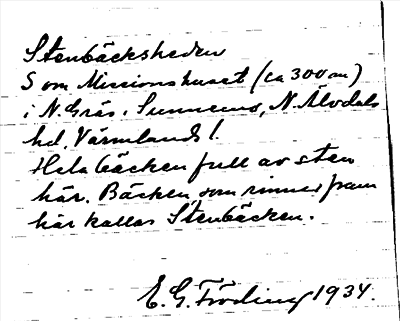 Stenbäcksheden
S om Missionshuset (ca 300 m)
i N. Gräs. Sunnemo, N. Älvdals
hd, Värmland l.
Hela bäcken full av sten
här. Bäcken, som rinner fram
här kallas Stenbäcken.
E. G. Fröding 1934.